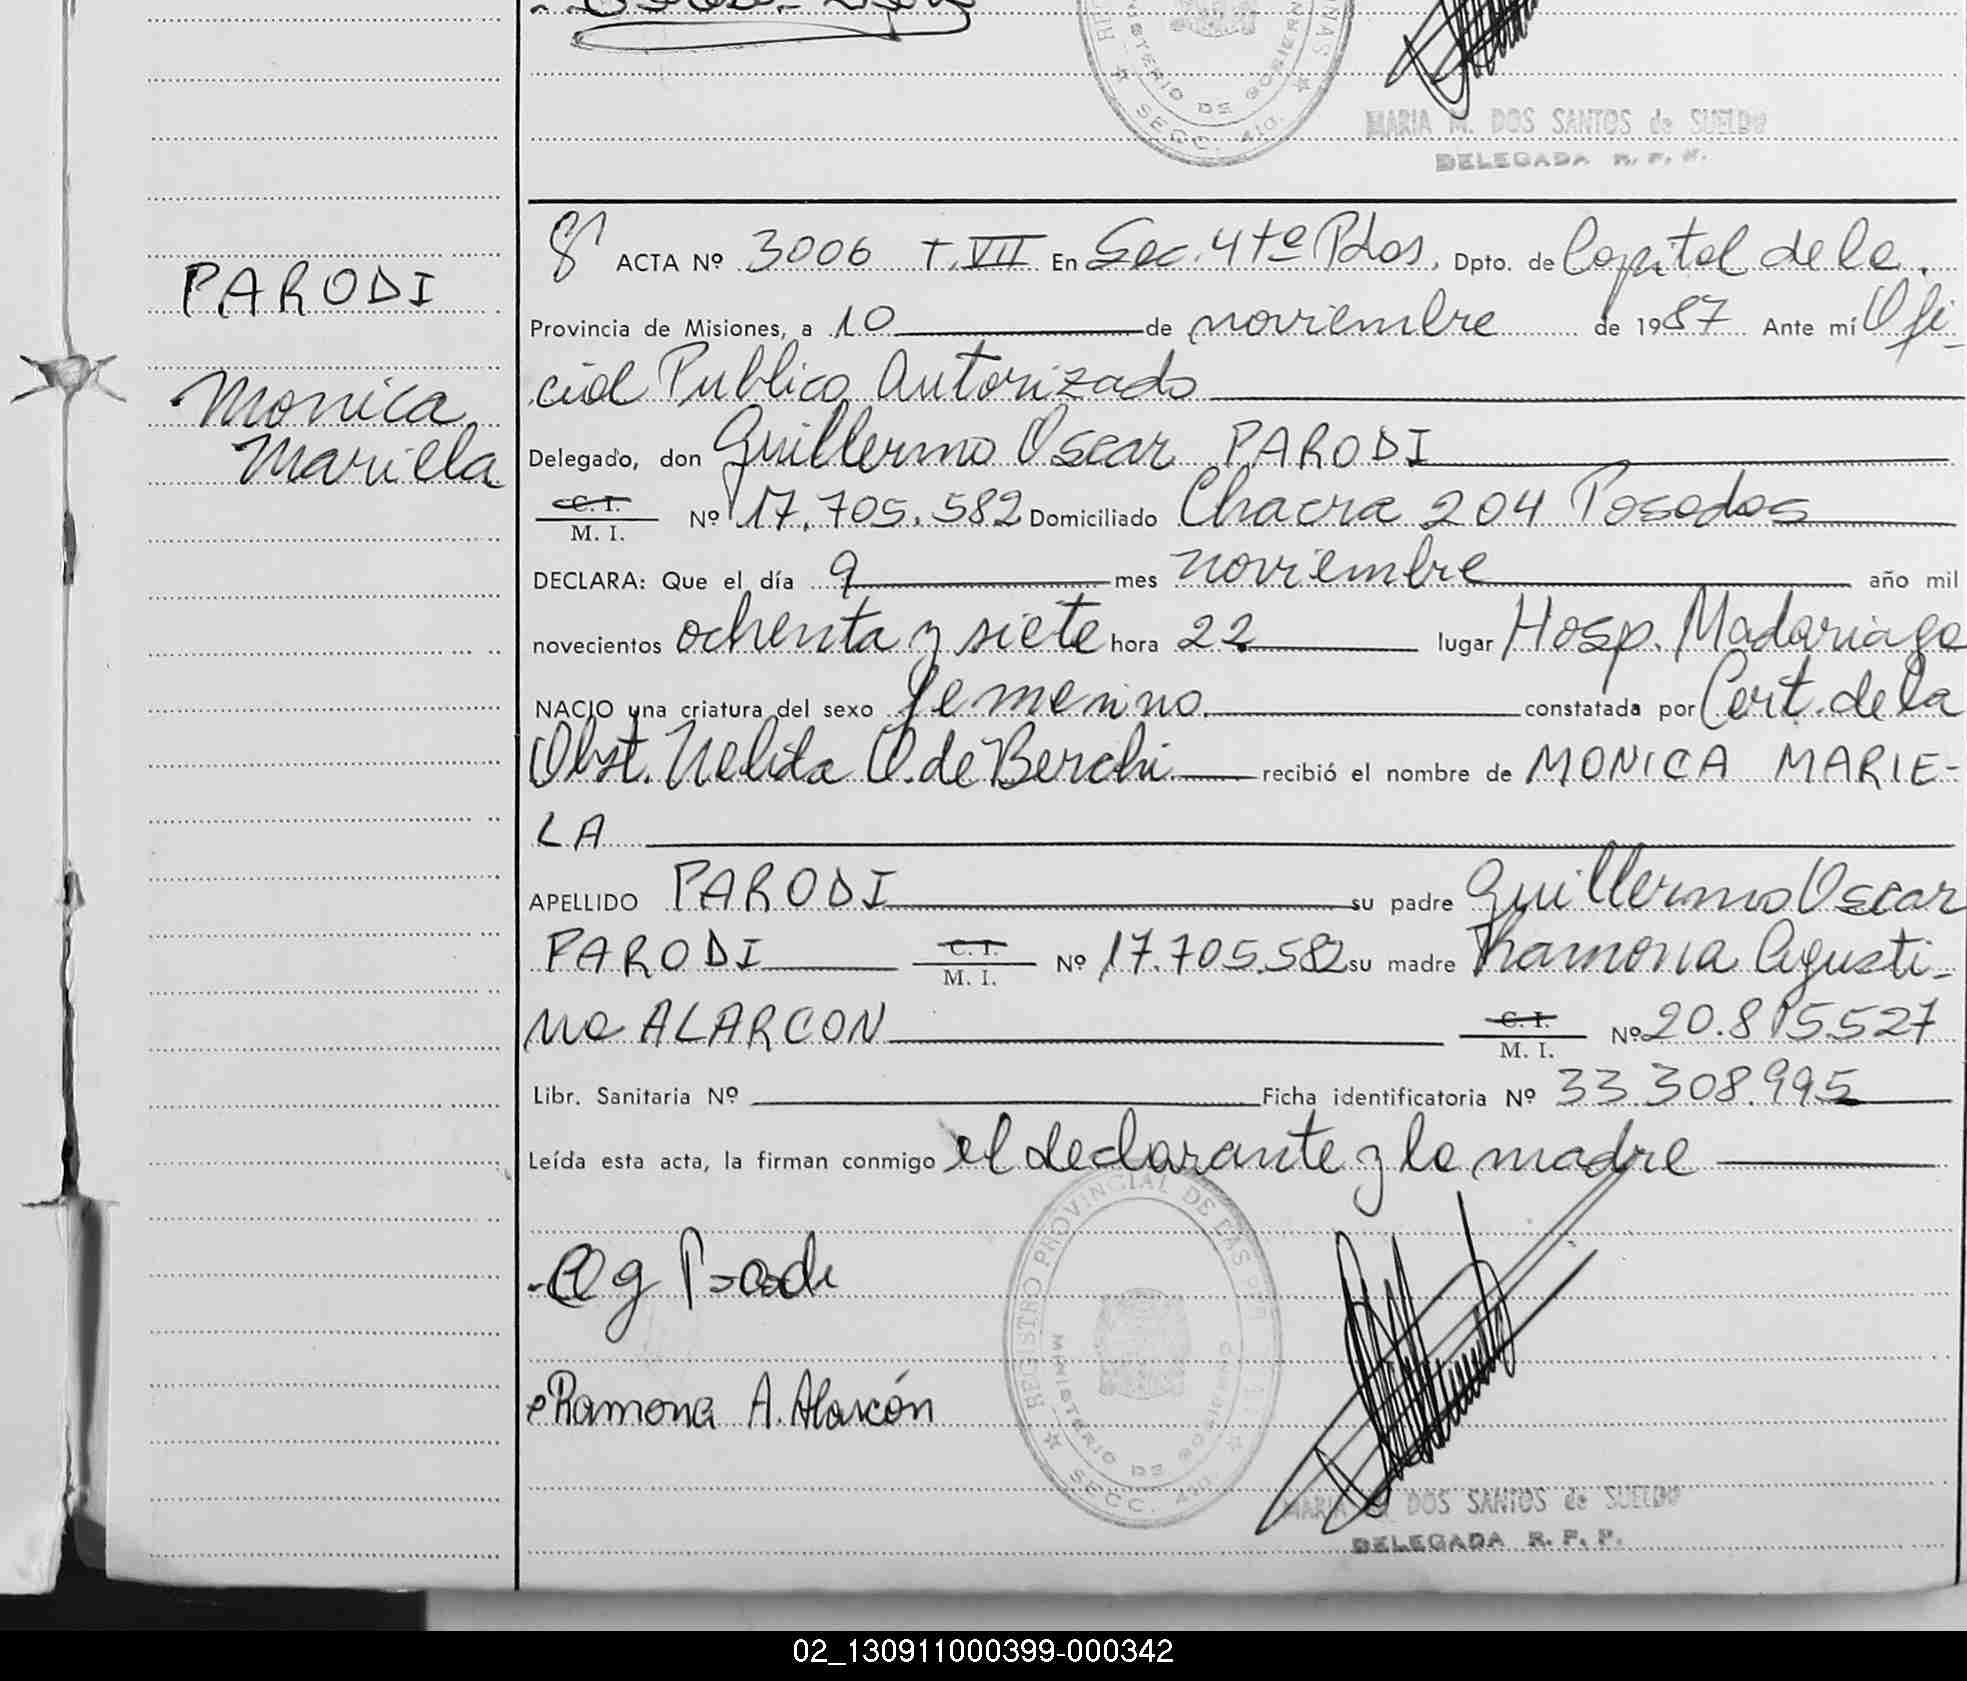 REGISTRO PROVINCIAL DE LAS PERSONAS
MINISTERIO DE GOBIERNO
SECC. 4ta.
MARIA M. DOS SANTOS de SUELDO
DELEGADA R. P. P.
PARODI
Monica
Mariela
ACTA Nº 3006 T. VII En Sec. 4ta Pdas. Dpto. de Capital de la
Provincia de Misiones, a 10 de noviembre de 1987 Ante mí Ofi-
cial Publico Autorizado
Delegado, don Guillermo Oscar PARODI
C. I.
M. I. Nº 17.705.582 Domiciliado Chacra 204 Posadas
DECLARA: Que el día 9 mes noviembre año mil
novecientos ochenta y siete hora 22 lugar Hosp. Madariaga
NACIO una criatura del sexo femenino constatada por Cert. de la
Obst. Nelida O. de Berchi recibió el nombre de MONICA MARIE-
LA
APELLIDO PARODI su padre Guillermo Oscar
PARODI C. I.
M. I. Nº 17.705.582 su madre Ramona Agusti-
na ALARCON C. I.
M. I. Nº 20.815.527
Libr. Sanitaria Nº Ficha identificatoria Nº 33.308.995
Leída esta acta, la firman conmigo el declarante y la madre
Ramona A. Alarcón
REGISTRO PROVINCIAL DE LAS PERSONAS
MINISTERIO DE GOBIERNO
SECC. 4ta.
MARIA M. DOS SANTOS de SUELDO
DELEGADA R. P. P.
02_130911000399-000342